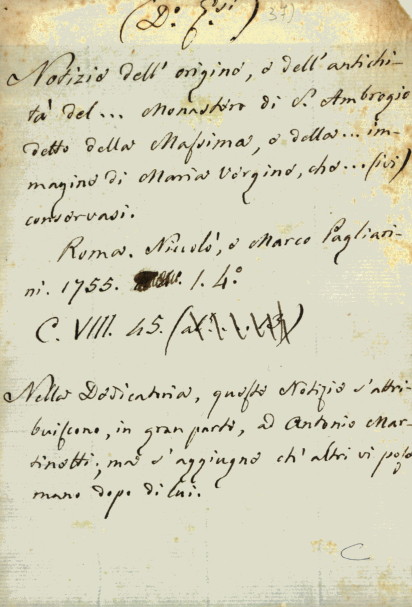 (D.° ... 37)
Notizie dell' origine, e dell' antichi-
tà del ... Monastero di S. Ambrogio
detto della Massima, e della ... im-
magine di Maria Vergine, che ... (ivi)
conservasi.
Roma. Niccolò, e Marco Pagliari-
ni. 1755. 1. 4.°
C. VIII. 45.
Nella Dedicatoria, queste Notizie s'attri-
buiscono, in gran parte, ad Antonio Mar-
tinetti; ma s'aggiugne ch' altri vi pose
mano dopo di lui.
C